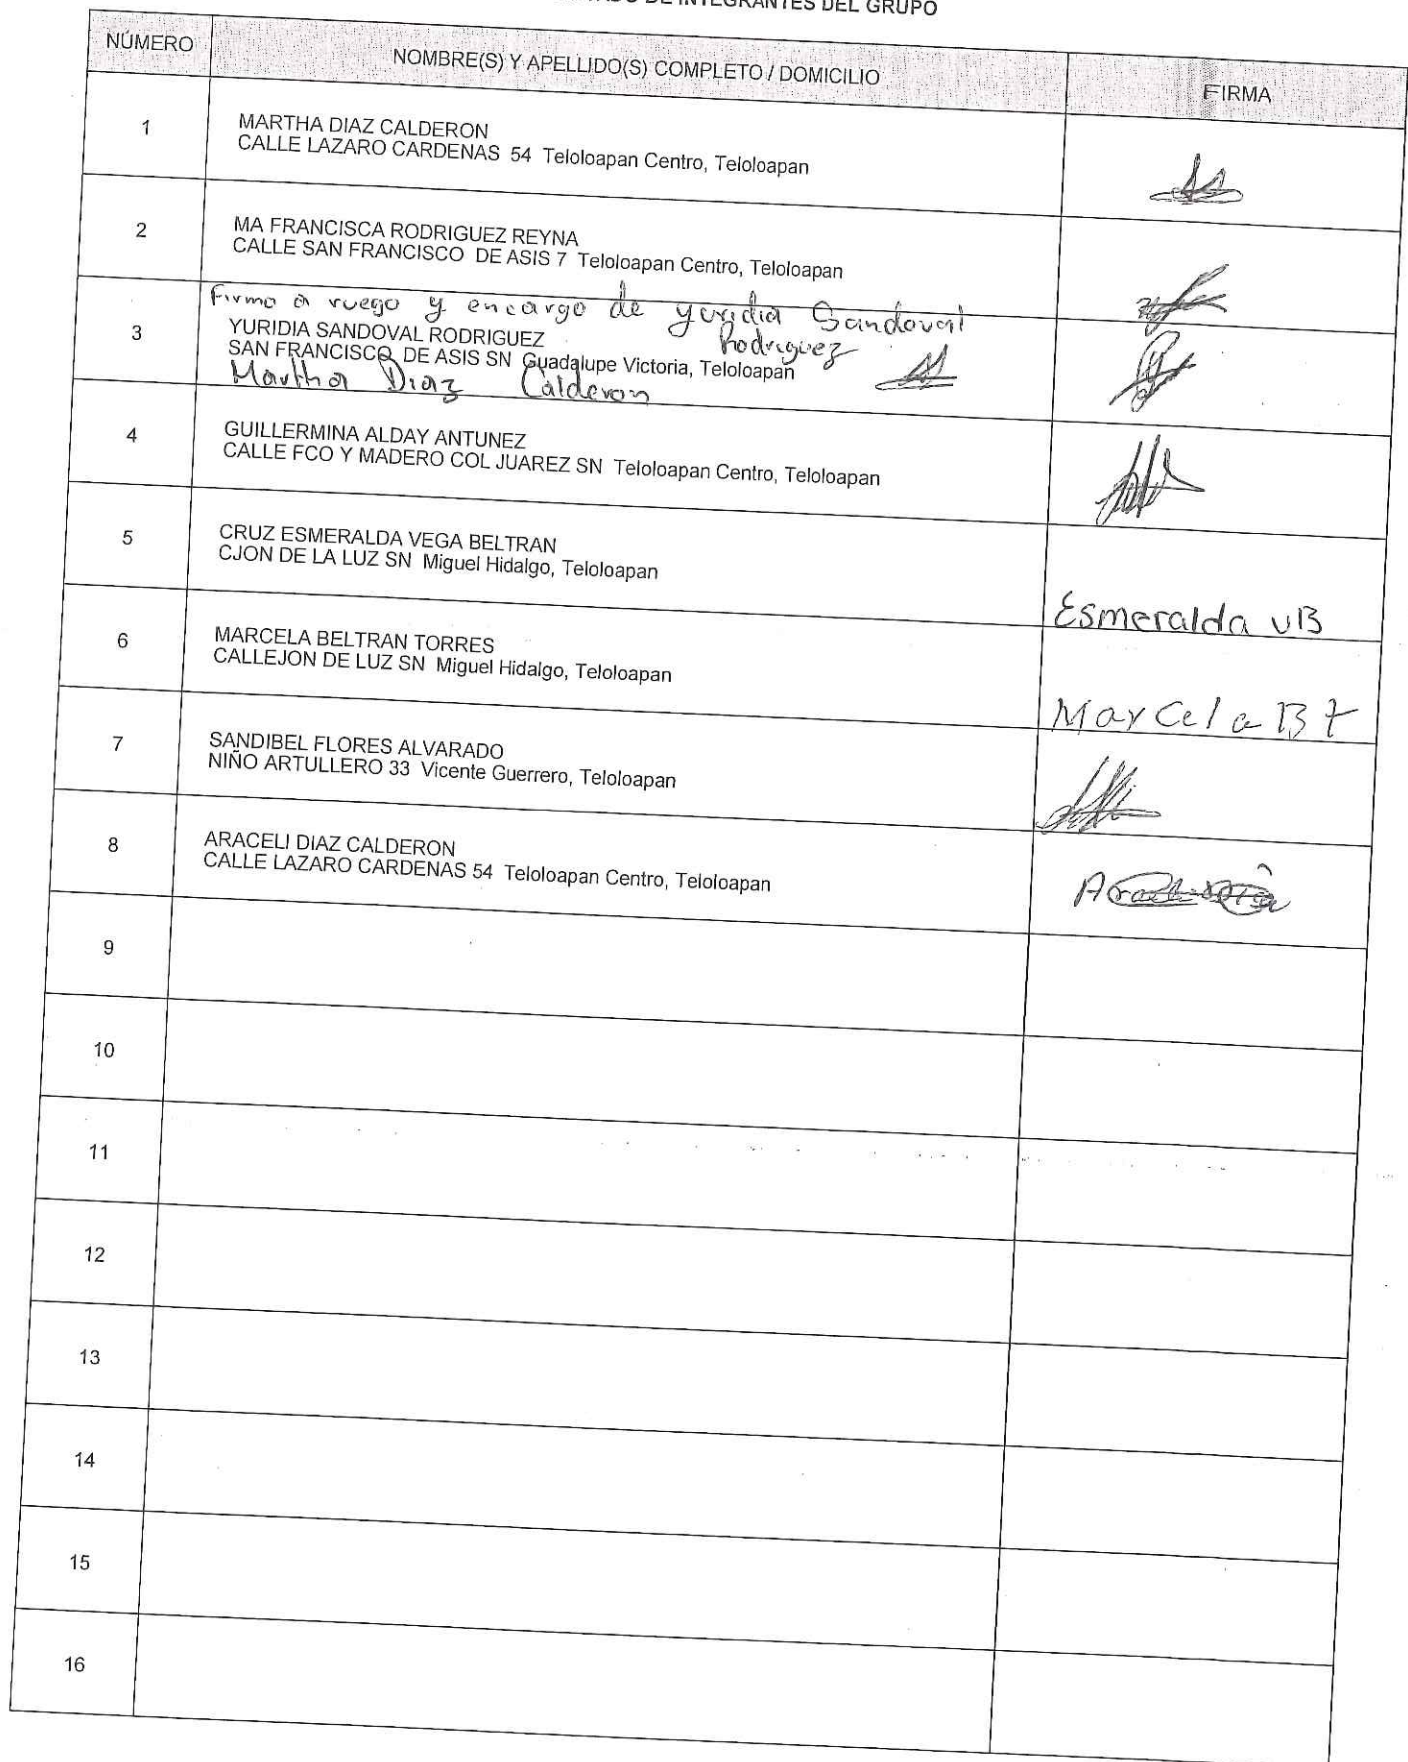 DE INTEGRANTES DEL GRUPO
NÚMERO NOMBRE(S) Y APELLIDO(S) COMPLETO / DOMICILIO FIRMA
1 MARTHA DIAZ CALDERON
CALLE LAZARO CARDENAS 54 Teloloapan Centro, Teloloapan
2 MA FRANCISCA RODRIGUEZ REYNA
CALLE SAN FRANCISCO DE ASIS 7 Teloloapan Centro, Teloloapan
Firmo a ruego y encargo de yuridia Sandoval
Rodriguez
3 YURIDIA SANDOVAL RODRIGUEZ
SAN FRANCISCO DE ASIS SN Guadalupe Victoria, Teloloapan
Martha Diaz Calderon
4 GUILLERMINA ALDAY ANTUNEZ
CALLE FCO Y MADERO COL JUAREZ SN Teloloapan Centro, Teloloapan
5 CRUZ ESMERALDA VEGA BELTRAN
CJON DE LA LUZ SN Miguel Hidalgo, Teloloapan
Esmeralda VB
6 MARCELA BELTRAN TORRES
CALLEJON DE LUZ SN Miguel Hidalgo, Teloloapan
Marcela B t
7 SANDIBEL FLORES ALVARADO
NIÑO ARTULLERO 33 Vicente Guerrero, Teloloapan
8 ARACELI DIAZ CALDERON
CALLE LAZARO CARDENAS 54 Teloloapan Centro, Teloloapan
9
10
11
12
13
14
15
16